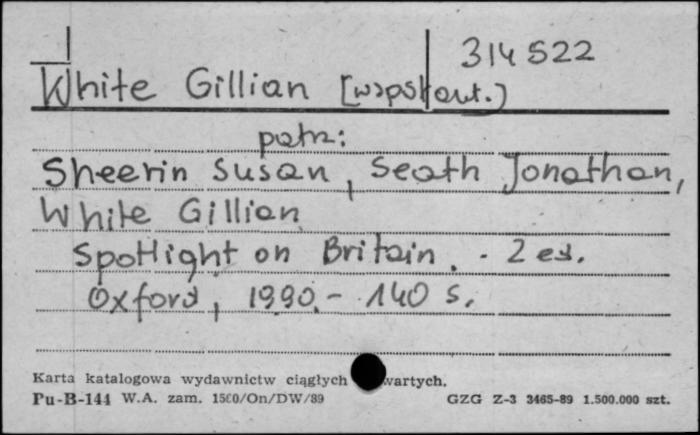 314522
White Gillian [współaut.]
patrz:
Sheerin Susan, Seath Jonathan,
White Gillian
Spotlight on Britain. - 2 ed.
Oxford, 1990. - 140 s.
Karta katalogowa wydawnictw ciągłych wartych.
Pu-B-144 W.A. zam. 1500/On/DW/89 GZG Z-3 3465-89 1.500.000 szt.